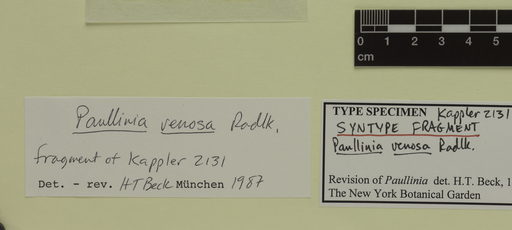 0 1 2 3 4 5
cm
Paullinia venosa Radlk.
fragment of Kappler 2131
Det. - rev. HT Beck München 1987
TYPE SPECIMEN Kappler 2131
SYNTYPE FRAGMENT
Paullinia venosa Radlk.
Revision of Paullinia det. H.T. Beck, 1
The New York Botanical Garden